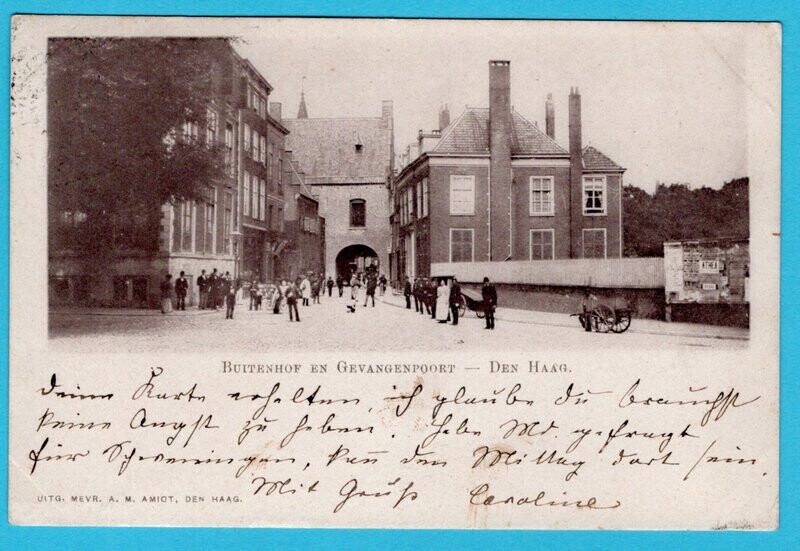 BUITENHOF EN GEVANGENPOORT — DEN HAAG.
deine Karte erhalten, ich glaube du brauchst
keine Angst zu heben. Habe Md. gefragt
für Scheveningen, kan den Mittag dort sein.
Mit Gruß Caroline
UITG. MEVR. A. M. AMIOT, DEN HAAG.